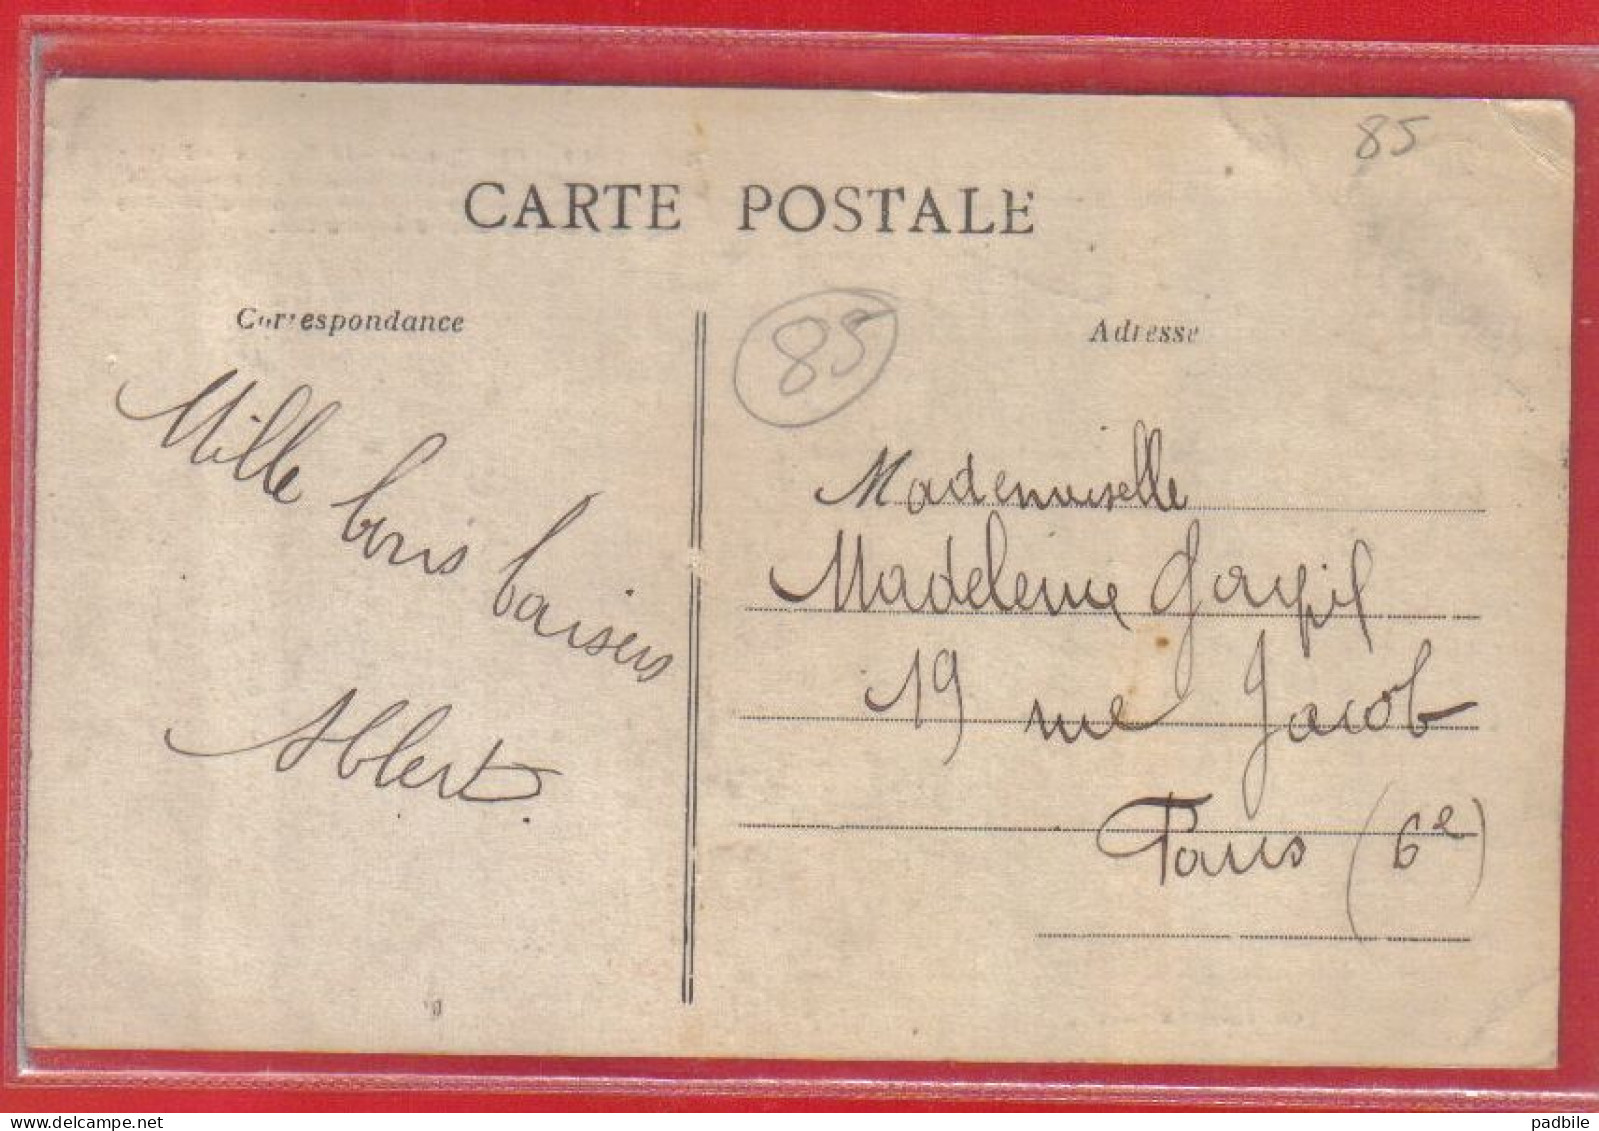 85
CARTE POSTALE
Correspondance
85
Adresse
Mille bons baisers
Albert.
Mademoiselle
Madeleine
19 rue Jacob
Paris (6e)
padbile